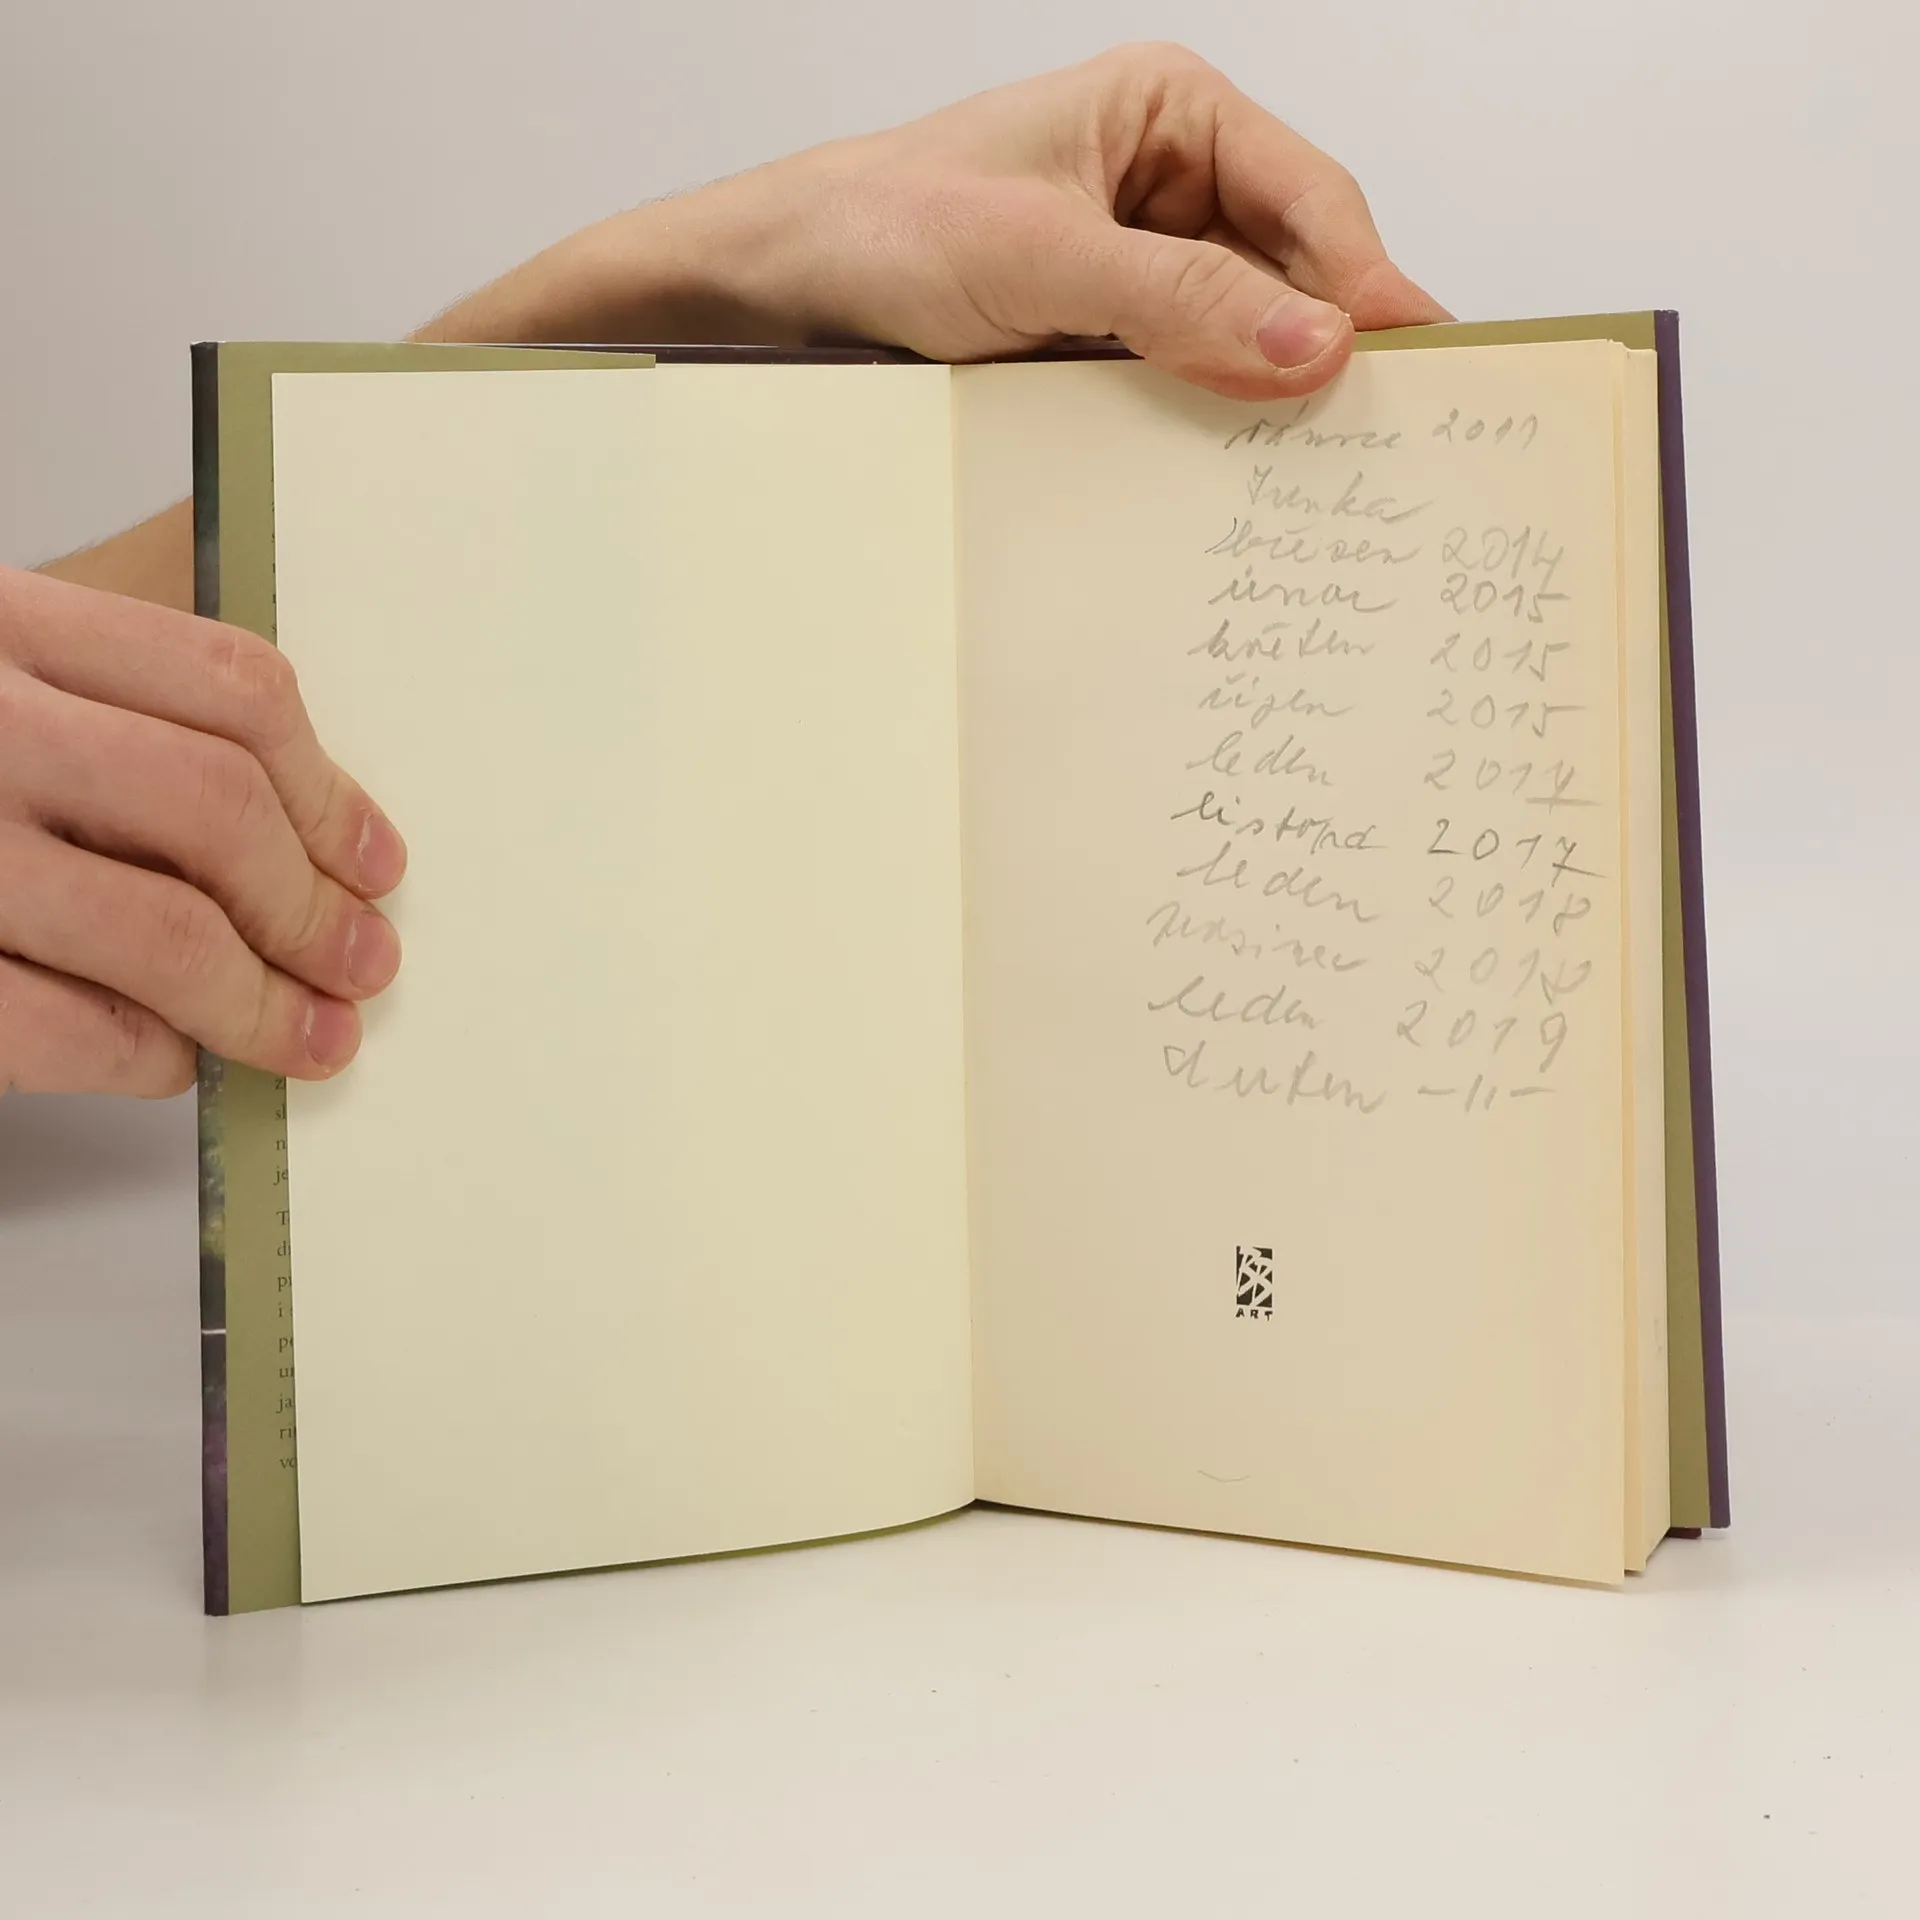 vánoce 2011
Irenka
březen 2014
únor 2015
květen 2015
říjen 2015
leden 2017
listopad 2017
leden 2018
prosinec 2018
leden 2019
duben -11-
BB
ART
z
sl
n
je
T
di
p
i
po
ja
vo